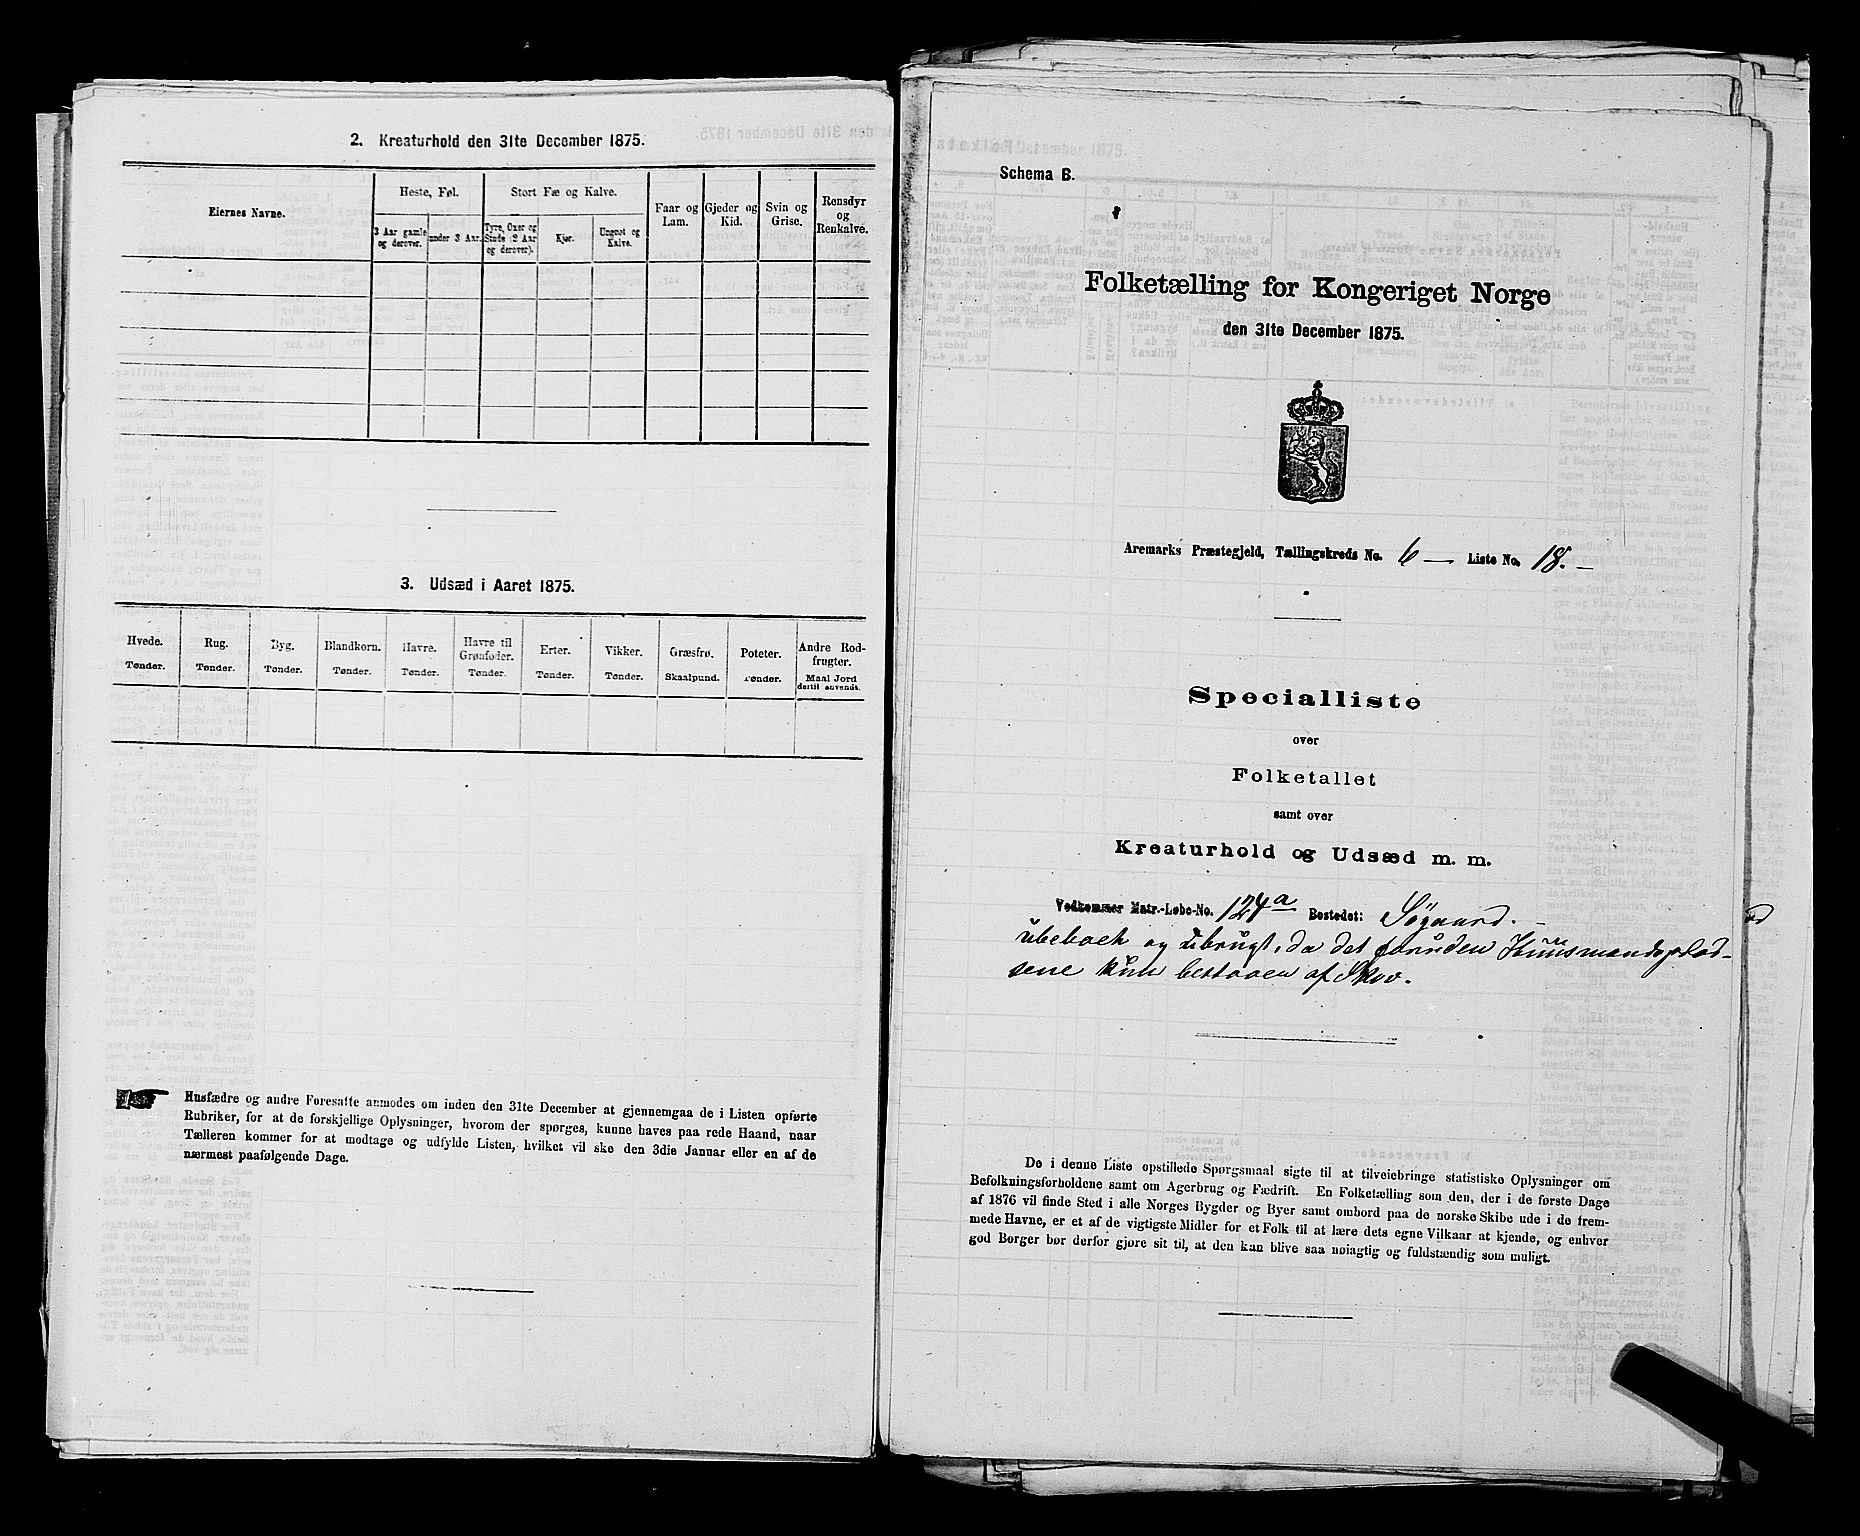 2. Kreaturhold den 31te December 1875.
Eiernes Navne.
Heste, Føl.
Stort Fæ og Kalve.
Faar og Lam.
Gjeder og Kid.
Svin og Grise.
Rensdyr og Renkalve.
3 Aar gamle og derover.
under 3 Aar.
Tyre, Oxer og Stude (2 Aar og derover).
Kjør.
Ungnøt og Kalve.
3. Udsæd i Aaret 1875.
Hvede.
Rug.
Byg.
Blandkorn.
Havre.
Havre til Grønfoder.
Erter.
Vikker.
Græsfrø.
Poteter.
Andre Rodfrugter.
Tønder.
Tønder.
Tønder.
Tønder.
Tønder.
Tønder.
Tønder.
Tønder.
Skaalpund.
Tønder.
Maal Jord dertil anvendt.
Husfædre og andre Foresatte anmodes om inden den 31te December at gjennemgaa de i Listen opførte
Rubriker, for at de forskjellige Oplysninger, hvorom der spørges, kunne haves paa rede Haand, naar
Tælleren kommer for at modtage og udfylde Listen, hvilket vil ske den 3die Januar eller en af de
nærmest paafølgende Dage.
Schema B.
Folketælling for Kongeriget Norge
den 31te December 1875.
Aremarks Præstegjeld, Tællingskreds No. 6 — Liste No. 18. –
Specialliste
over
Folketallet
samt over
Kreaturhold og Udsæd m. m.
Vedkommer Matr.-Løbe-No. 124a Bostedet: Søgaard. –
ubeboet og ubrugt, da det foruden Huusmandsplad-
sene kun bestaaer af Skov.
De i denne Liste opstillede Spørgsmaal sigte til at tilveiebringe statistiske Oplysninger om
Befolkningsforholdene samt om Agerbrug og Fædrift. En Folketælling som den, der i de første Dage
af 1876 vil finde Sted i alle Norges Bygder og Byer samt ombord paa de norske Skibe ude i de frem-
mede Havne, er et af de vigtigste Midler for et Folk til at lære dets egne Vilkaar at kjende, og enhver
god Borger bør derfor gjøre sit til, at den kan blive saa nøiagtig og fuldstændig som muligt.